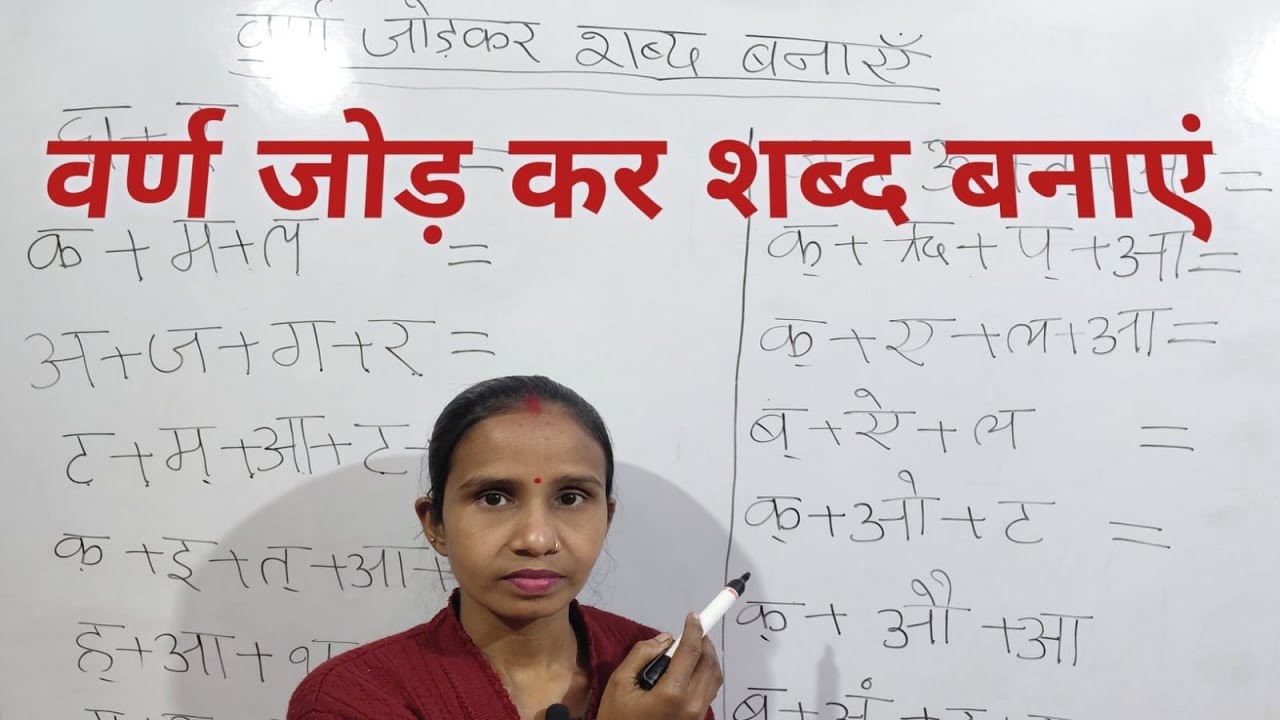 वर्ण जोड़कर शब्द बनाएँ
वर्ण जोड़ कर शब्द बनाएं
क + म + ल =
अ + ज + ग + र =
ट + म् + आ + ट
क् + इ + त् + आ +
ह् + आ +
क् + ऋ + प् + आ =
क् + ए + ल + आ =
ब् + ऐ + ल =
क् + ओ + ट =
क् + औ + आ